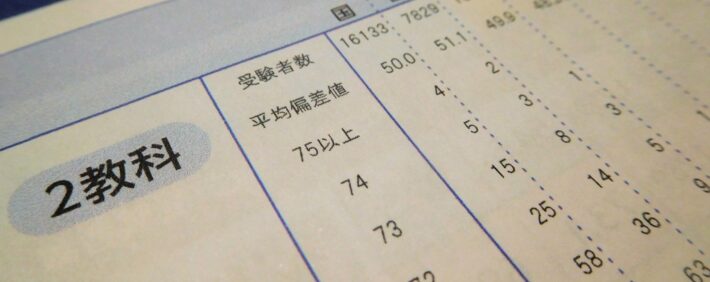 国
受験者数 16133 7829
平均偏差値 50.0 51.1 49.9
75以上 4 2
2教科
74 5 3 1
73 15 8 3
72 25 14 5
58 36
63